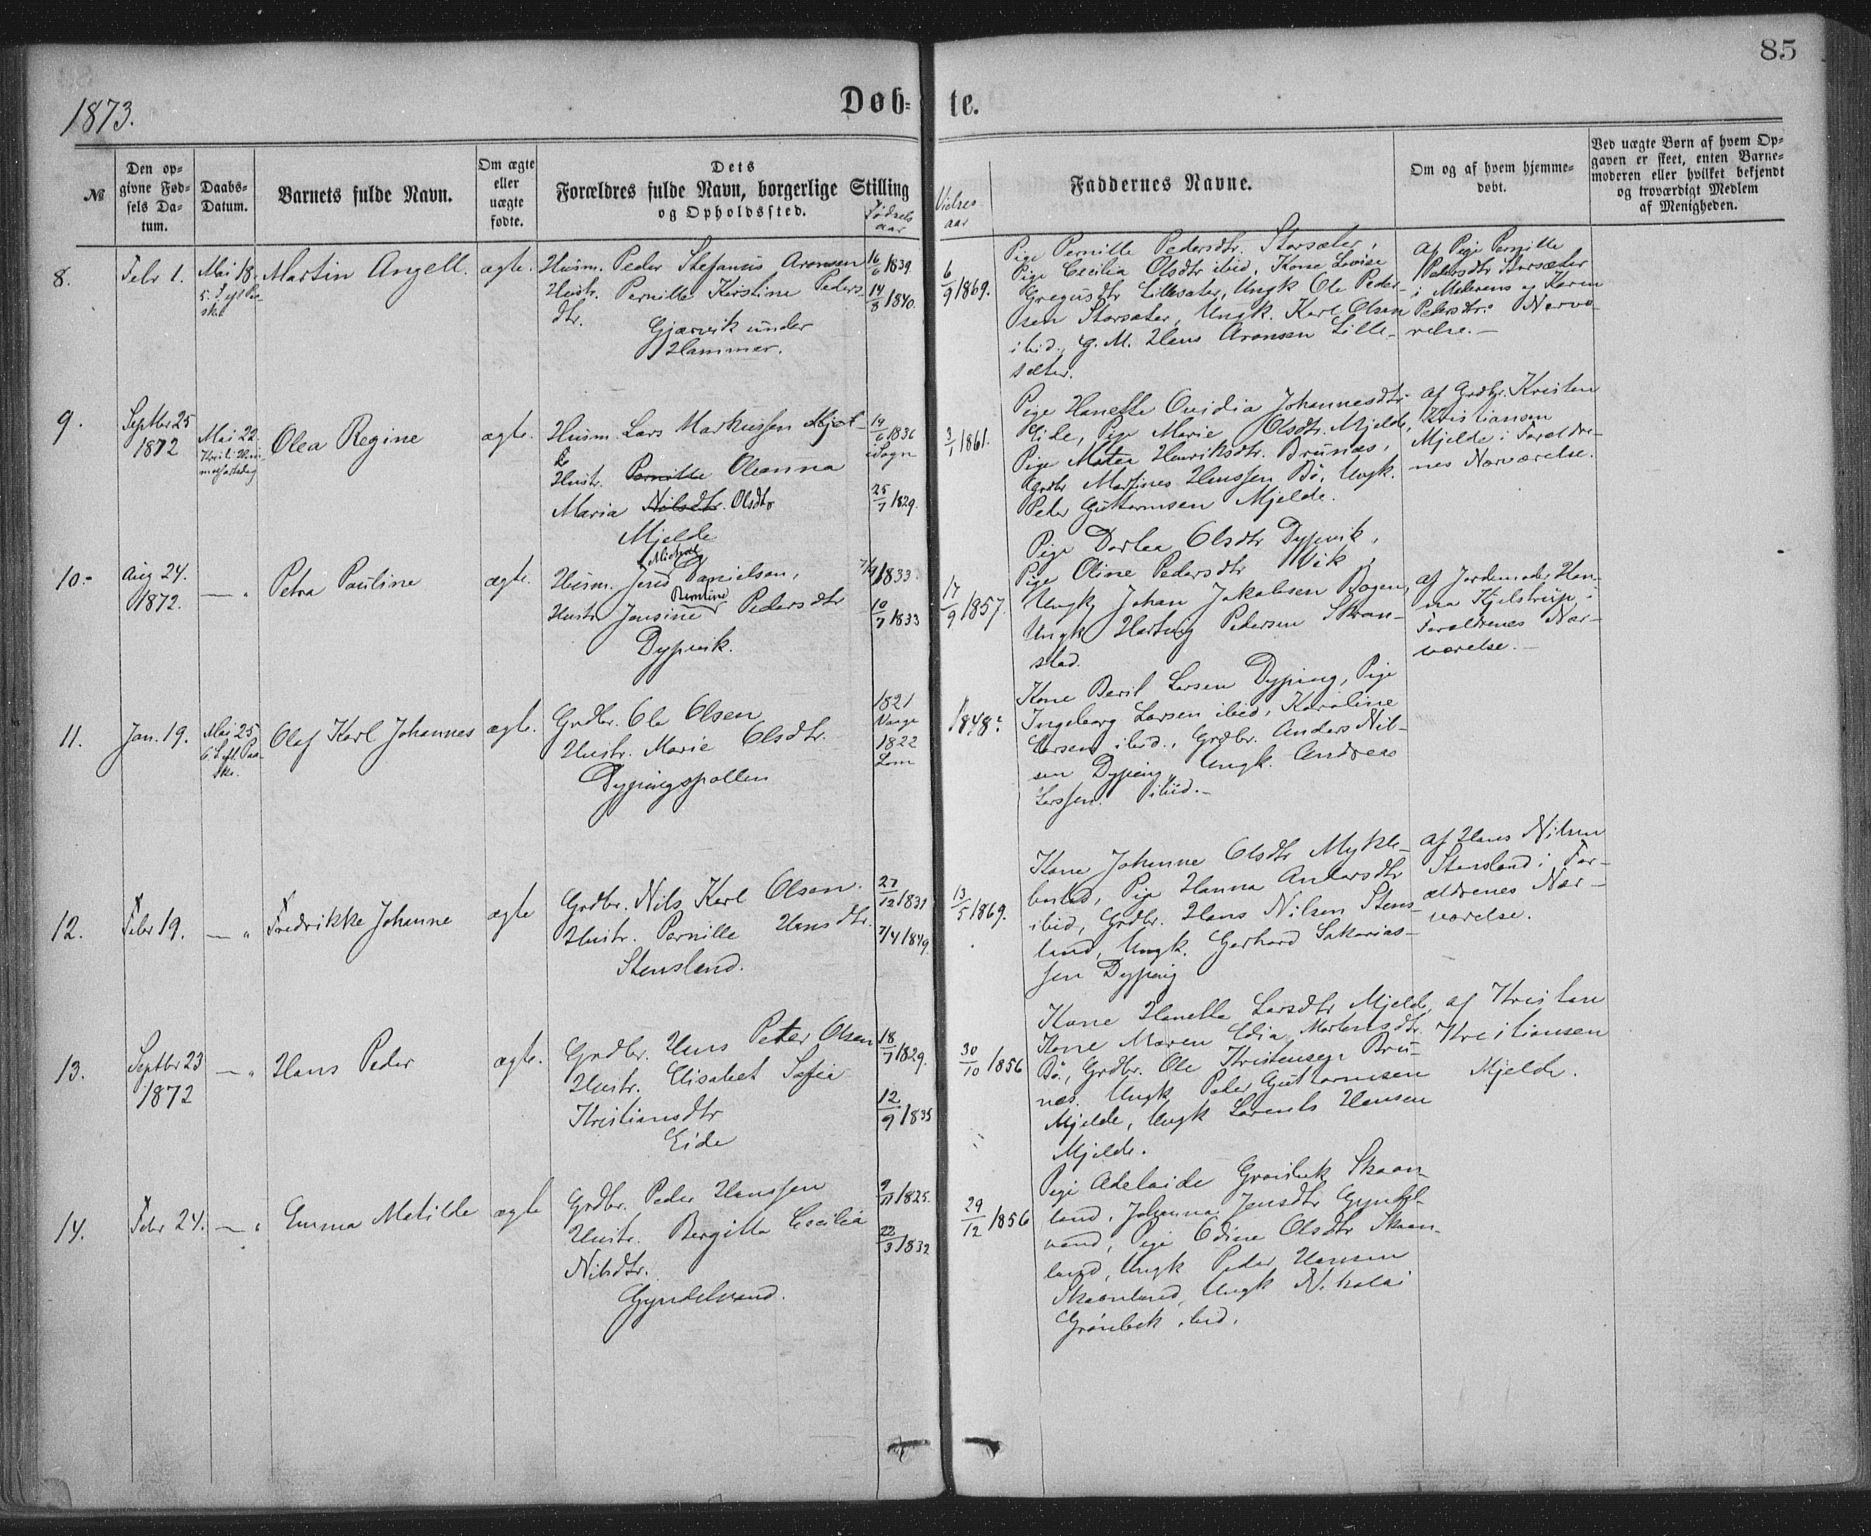 85
1873.
Døb-te.
№
Den op-
givne Fød-
sels Da-
tum.
Daabs-
Datum.
Barnets fulde Navn.
Om ægte
eller
uægte
fødte.
Dets
Forældres fulde Navn, borgerlige Stilling
og Opholdssted.
Fødsels
aar
Vielses
aar
Faddernes Navne.
Om og af hvem hjemme-
døbt.
Ved uægte Børn af hvem Op-
gaven er skeet, enten Barne-
moderen eller hvilket bekjendt
og troværdigt Medlem
af Menigheden.
8.
Febr 1.
Mai 18.
5. S. eft Paa-
ske
Martin Angell.
ægte.
Husm. Peder Stefanus Aronsen
Hustr. Pernille Kirstine Peders
dtr.
Gjærvik under
Hammer.
16/6 1839
14/8 1840.
6/9 1869.
Pige Pernille Pedersdtr. Storsæter,
Pige Cecilia Olsdtr ibid, Kone Lovise
Gregusdtr Lillesæter, Ungk Ole Peder-
sen Storsæter, Ungk. Karl Olsen
ibid., G. M. Hans Aronsen Lille-
sæter.
af Pige Pernille
Pedersdtr Storsæter
i Moderens og Karen
Pedersdtrs Nærvæ-
relse.-
9.
Septbr 25
1872
Mai 22
Kristi Him-
melfartsdag
Olea Regine
ægte.
Husm. Lars Markussen Mjel-
de
Hustr. Pernille Oleanna
Maria Nilsdtr. Olsdtr
Mjelde
14/6 1836
i Sogn
25/7 1829.
3/1 1861.
Pige Hanette Ovidia Johannesdtr
Eide, Pige Marie Olsdtr. Mjelde,
Pige Mater Henriksdtr. Brunæs,
Grdbr Martines Hanssen Bø, Ungk.
Peder Guttormsen Mjelde.
af Grdbr. Kristen
Kristiansen
Mjelde i Forældre-
nes Nærværelse.
10.-
Aug 24.
1872.
— "
Petra Pauline
ægte.
Michael
Husm. Jens Danielsen,
Hustr. Jensine Pedersdtr
Dypvik.
7/9 1833.
10/7 1833
17/9 1857.
Pige Dortea Olsdtr Dypvik,
Pige Oline Pedersdtr Vik,
Ungk Johan Jakobsen Bogen,
Ungk Hartvig Pedersen Skran-
stad.
af Jordemoder Han-
na Kjelstrup i
Forældrenes Nær-
værelse.-
11.
Jan. 19.
Mai 25
6. S eft. Paa-
ske.
Olaf Karl Johannes
ægte.
Grdbr. Ole Olsen
Hustr. Marie Olsdtr.
Dypingspollen
1821
Vaage
1822
Lom
1848?
Kone Beril Larsen Dyping, Pige
Ingeborg Larsen ibid, Karoline
Larsen ibid., Grdbr. Anders Nil-
sen Dyping, Ungk. Andreas
Larssen ibid.-
12.
Febr 19.
— "
Fredrikke Johanne
ægte
Grdbr. Nils Karl Olsen.
Hustr. Pernille Hansdtr.
Stensland.
27/12 1831
7/4 1849.
13/5 1869.
Kone Johanne Olsdtr Mykle-
bustad, Pige Hanna Andersdtr
ibid, Grdbr. Hans Nilsen Stens-
land, Ungk. Gerhard Sakarias-
sen Dyping
af Hans Nilsen
Stensland i For-
ældrenes Nær-
værelse.
13.
Septbr 23
1872
— "
Hans Peder
ægte.
Grdbr. Hans Peter Olsen
Hustr. Elisabet Sofie
Kristiansdtr
Eide
18/7 1829.
12/9 1835
30/10 1856
Kone Hanella Larsdtr Mjelde,
Kone Maren Edia Mortensdtr.
Bø., Grdbr. Ole Kristensen Bru-
næs. Ungk Peder Guttormsen
Mjelde, Ungk Lorents Hansen
Mjelde.
af Kristen
Kristiansen
Mjelde.
14.
Febr 24.
— "
Emma Matilde
ægte
Grdbr. Peder Hanssen
Hustr. Bergitta Cecilia
Nilsdtr.
Gyndelvand.
9/11 1825.
22/3 1832
29/12 1856
Pige Adelaide Grønbek Skaan-
land, Johanna Jensdtr Gyndel-
vand, Pige Odine Olsdtr Skaan-
land, Ungk Peder Hansen
Skaanland, Ungk Nikolai
Grønbek ibid.